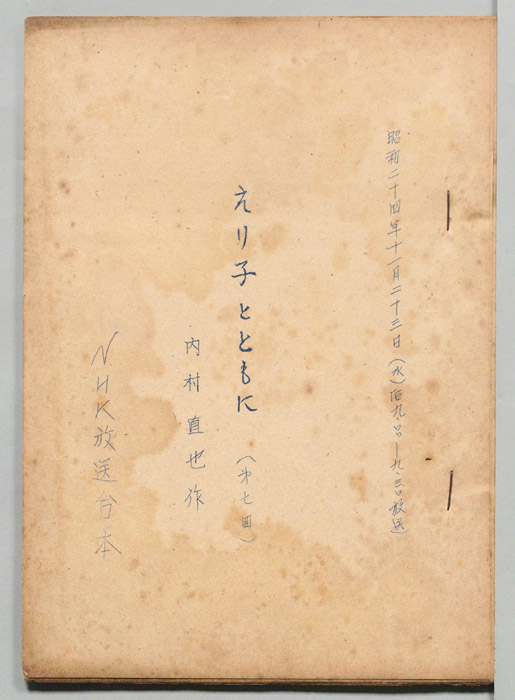 昭和二十四年十一月二十三日(水)后九.〇〇—九.三〇放送
えり子とともに
(第七回)
内村直也作
NHK放送台本